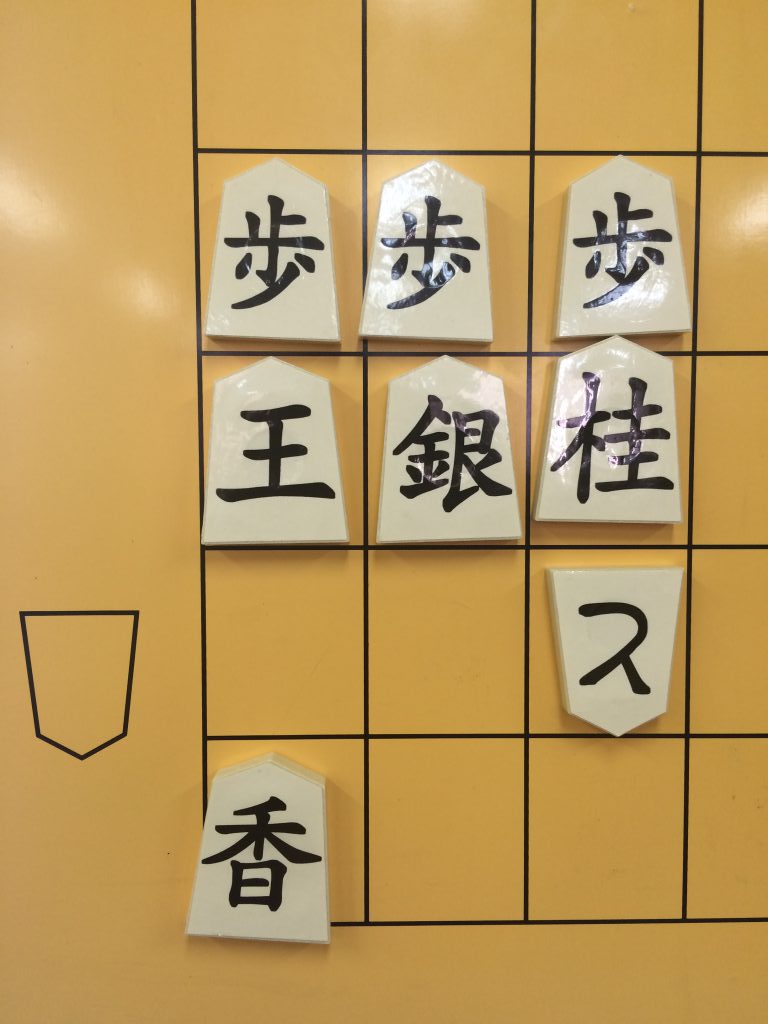 歩 歩 歩
王 銀 桂
と
香